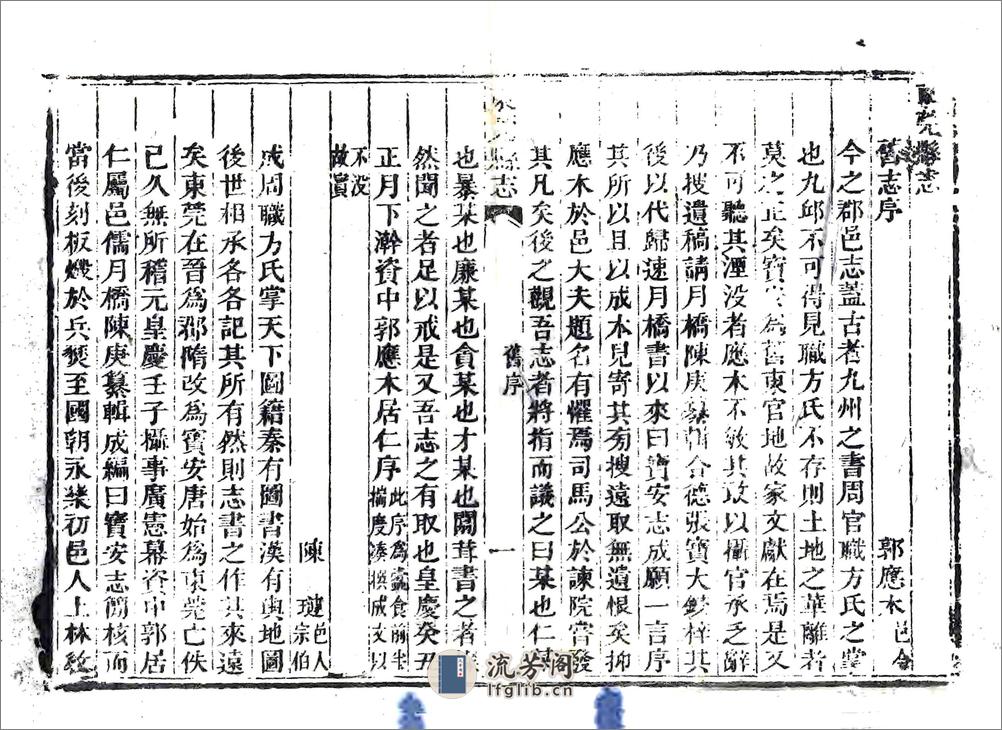 東莞縣志
舊志序
郭應木邑令
今之郡邑志蓋古者九州之書周官職方氏之掌
也九邱不可得見職方氏不存則土地之華離者
莫之正矣寶安為舊東官地故家文獻在焉是又
不可聽其湮没者應木不敏其政以攝官承乏辭
乃搜遺稿請月橋陳庚纂輯合德張寶大鋟梓其
後以代歸速月橋書以來曰寶安志成願一言序
其所以且以成本見寄其旁搜遠取無遺根矣抑
應木於邑大夫題名有懼焉司馬公於諫院嘗發
其凡矣後之觀吾志者將指而議之曰某也仁某
縣志
舊序
一
也暴某也廉某也貪某也才某也闒茸書之者
然聞之者足以戒是又吾志之有取也皇慶癸丑
正月下澣資中郭應木居仁序此序為蠹食前半
攟慶湊掇成文以
不没
故實
陳璉邑人
宗伯
成周職方氏掌天下圖籍秦有圖書漢有輿地圖
後世相承各各記其所有然則志書之作其來遠
矣東莞在晉為郡隋改為寶安唐始為東莞亡佚
已久無所稽元皇慶壬子攝事廣憲幕資中郭居
仁屬邑儒月橋陳庚纂輯成編曰寶安志簡核而
當後刻板燬於兵燹至國朝永樂初邑人上林
流芳阁
lfglib.cn